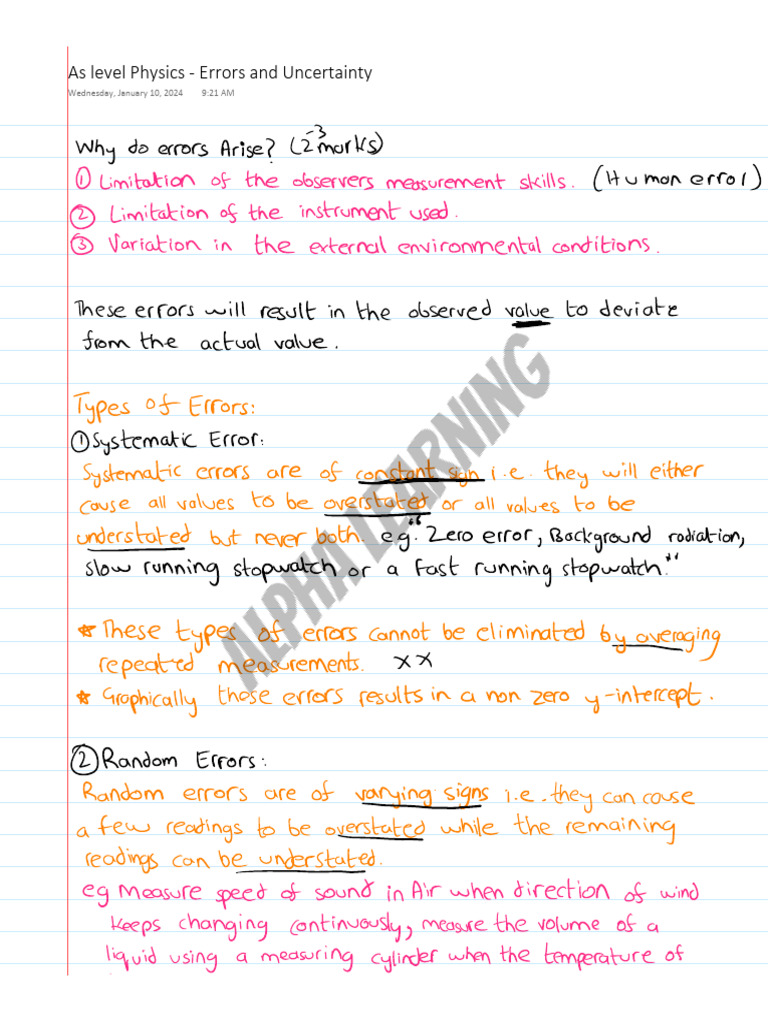 As level Physics - Errors and Uncertainty
Wednesday, January 10, 2024 9:21 AM
Why do errors Arise? (2-3 marks)
① Limitation of the observers measurement skills. (Human error)
② Limitation of the instrument used.
③ Variation in the external environmental conditions.
These errors will result in the observed value to deviate
from the actual value.
Types of Errors:
① Systematic Error:
Systematic errors are of constant sign i.e. they will either
cause all values to be overstated or all values to be
understated but never both. e.g. "Zero error, Background radiation,
slow running stopwatch or a fast running stopwatch."
* These types of errors cannot be eliminated by averaging
repeated measurements. x x
* Graphically these errors results in a non zero y-intercept.
② Random Errors:
Random errors are of varying signs i.e. they can cause
a few readings to be overstated while the remaining
readings can be understated.
eg Measure speed of sound in Air when direction of wind
keeps changing continuously, measure the volume of a
liquid using a measuring cylinder when the temperature of
ALPHA LEARNING